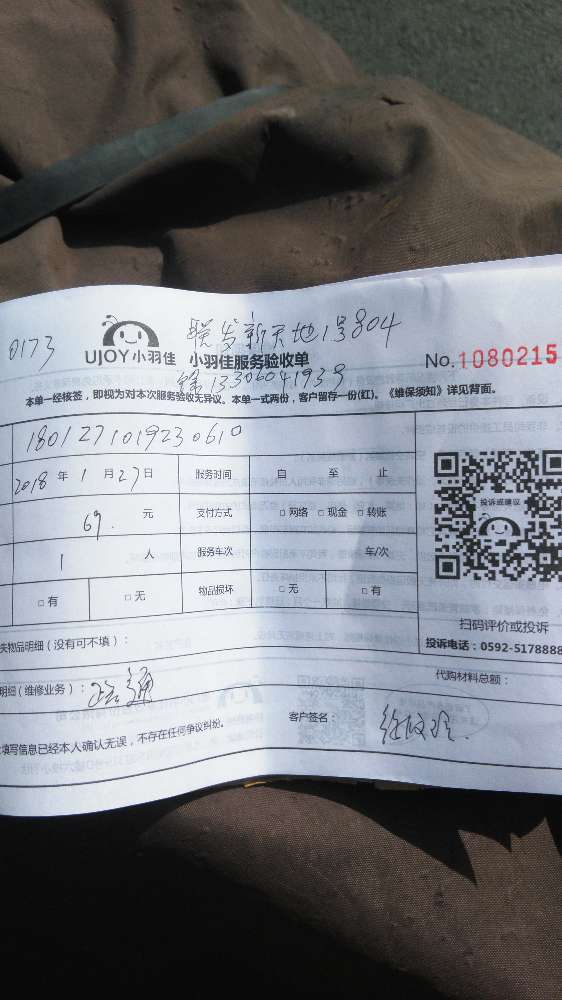 0173
联发新天地1号804
UJOY小羽佳 小羽佳服务验收单
No.1080215
徐13306041939
本单一经核签，即视为对本次服务验收无异议。本单一式两份，客户留存一份(红)。《维保须知》详见背面。
1801271019230610
2018年1月27日 服务时间 自 至 止
69. 元 支付方式 □网络 □现金 □转账
1 人 服务车次 车/次
□有 □无 物品损坏 □无 □有
投诉或建议
扫码评价或投诉
投诉电话：0592-5178888
失物品明细（没有可不填）：
明细（维修业务）：
代购材料总额：
客户签名：
填写信息已经本人确认无误，不存在任何争议纠纷。